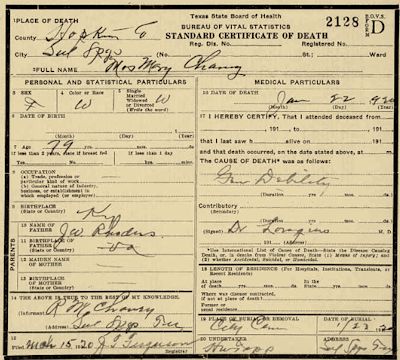 PLACE OF DEATH
Texas State Board of Health
BUREAU OF VITAL STATISTICS
STANDARD CERTIFICATE OF DEATH
2128
D
County Hopkins Co
Reg. Dis. No.
Registered No.
City Sul Spgs
No.
St.;
Ward
FULL NAME Mrs Mary Chaney
PERSONAL AND STATISTICAL PARTICULARS
MEDICAL PARTICULARS
3 SEX
4 Color or Race
5 Single Married Widowed or Divorced
(Write the word)
F W W
DATE OF DEATH
Jan 22 1920
(Month) (Day) (Year)
DATE OF BIRTH
(Month) (Day) (Year)
I HEREBY CERTIFY, That I attended deceased from
191 , to 191
that I last saw h alive on 191
and that death occurred, on the date stated above, at m.
The CAUSE OF DEATH* was as follows:
7 Age 79 yrs. mos. ds.
If less than 2 years, state if breast fed
If less than 1 day
Yes No hrs. min.
Gen Debility
(Duration) yrs. mos. ds.
OCCUPATION
(a) Trade, profession or particular kind of work
(b) General nature of industry, business, or establishment in which employed (or employer)
Contributory
(Secondary)
(Duration) yrs. mos. ds.
(Signed) Dr M. D.
191 (Address)
BIRTHPLACE
(State or Country) Ky
PARENTS
10 NAME OF FATHER J W Rhodens
11 BIRTHPLACE OF FATHER
(State or Country) Va
12 MAIDEN NAME OF MOTHER
13 BIRTHPLACE OF MOTHER
(State or Country)
*Use International List of Causes of Death—State the Disease Causing Death, or, in deaths from Violent Causes, State (1) Means of Injury; and (2) whether Accidental, Suicidal, or Homicidal.
18 LENGTH OF RESIDENCE (For Hospitals, Institutions, Transients, or Recent Residents)
At place of death yrs. mos. ds.
In the State yrs. mos. ds.
Where was disease contracted, if not at place of death?
Former or usual residence
14 THE ABOVE IS TRUE TO THE BEST OF MY KNOWLEDGE.
(Informant) R M Chaney
(Address) Sul Spgs Tex
19 PLACE OF BURIAL OR REMOVAL
City Cem
DATE OF BURIAL
1/23 1920
15 Filed Mch 15 1920 J T Ferguson
20 UNDERTAKER
(Address) Sul Spgs Tex